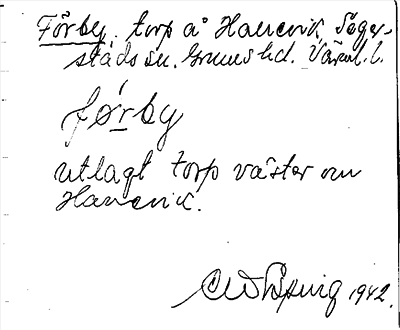 Förby, torp å Hanevik, Seger-
stads sn. Grums hd. Värml. l.
førby
utlagt torp väster om
Hanevik.
1942.